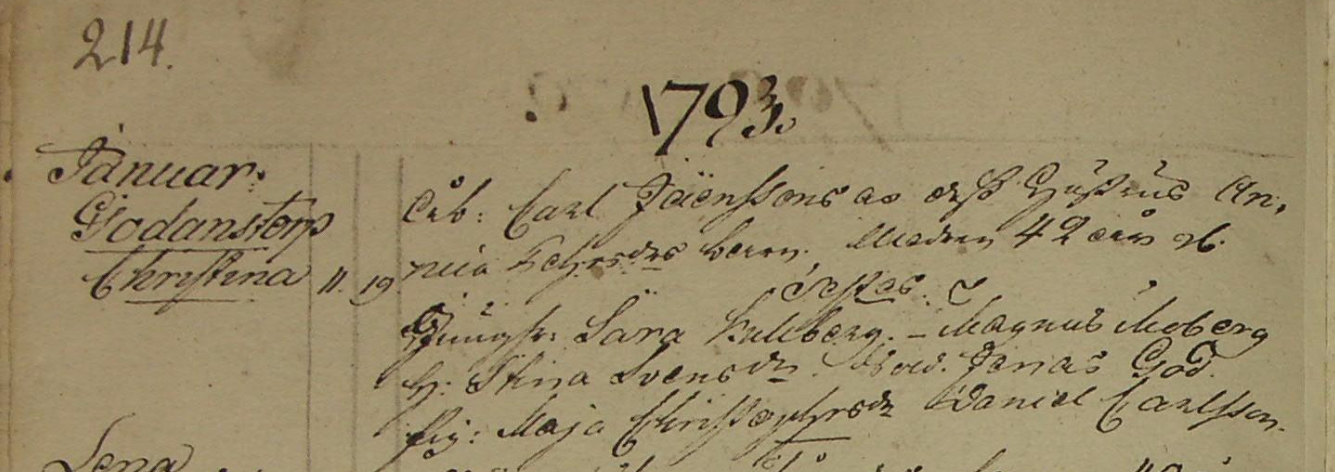 214.
1793.
Januar:
Godanstorp
Christina 11. 19
Åb: Carl Jäenssons ac dess Hustrus An,
nicas Pehrsdrs barn. Modren 42 år gl.
Testes.
Jungfr: Sara Kullberg. – Magnus Moberg
H. Stina Svensdr. Jonas God.
pig: Maja Christophersdr Daniel Carlsson.
Lena